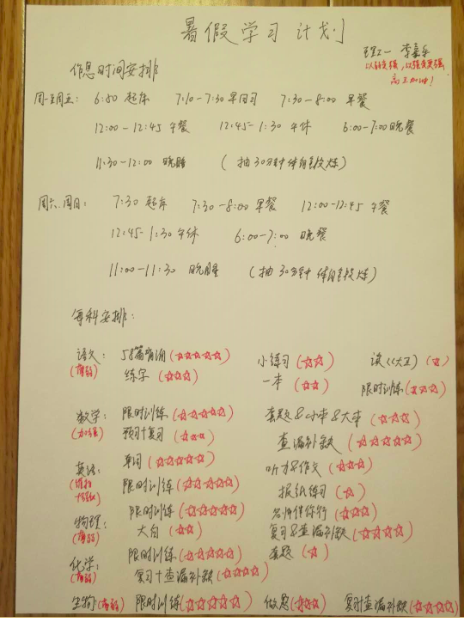 暑假学习计划
作息时间安排
周一至周五: 6:50 起床 7:10-7:30 早自习 7:30-8:00 早餐
12:00-12:45 午餐 12:45-1:30 午休 6:00-7:00 晚餐
11:30-12:00 晚睡 (抽30分钟体育锻炼)
周六、周日: 7:30 起床 7:30-8:00 早餐 12:00-12:45 午餐
12:45-1:30 午休 6:00-7:00 晚餐
11:00-11:30 晚睡 (抽30分钟体育锻炼)
每科安排:
语文: 58篇背诵 (☆☆☆☆☆) 小练习 (☆☆) 读 (☆)
练字 (☆☆☆) 一本 (☆☆) 限时训练 (☆☆☆)
数学: 限时训练 (☆☆☆☆☆) 套题&小本&大本 (☆☆☆)
(加强) 预习+复习 (☆☆☆) 查漏补缺 (☆☆☆☆☆)
英语: 单词 (☆☆☆☆☆) 听力&作文 (☆☆☆)
限时训练 (☆☆☆☆☆) 报纸练习 (☆)
物理: 限时训练 (☆☆☆☆☆) 名师伴你行 (☆☆☆)
大白 (☆☆) 复习&查漏补缺 (☆☆☆☆)
化学: 限时训练 (☆☆☆☆☆) 套题 (☆)
复习+查漏补缺 (☆☆☆☆)
生物: 限时训练 (☆☆☆☆☆) 做题 (☆☆☆) 复习+查漏补缺 (☆☆☆☆)